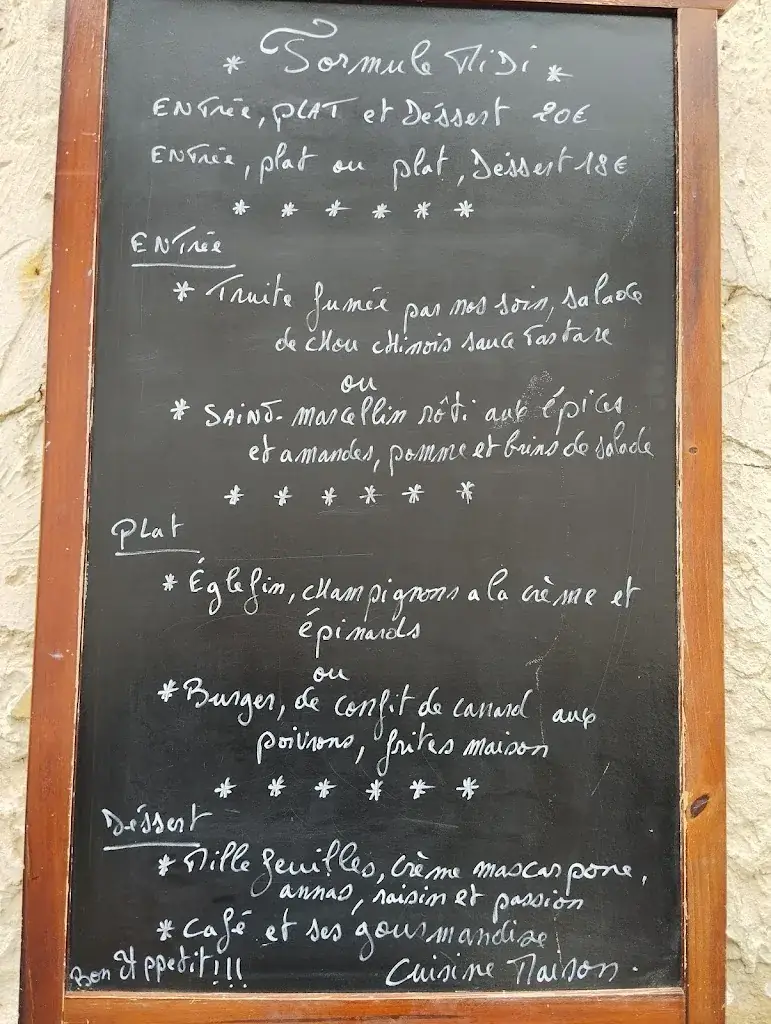 * Formule Midi *
Entrée, plat et Déssert 20€
Entrée, plat ou plat, Déssert 18€
* * * * * *
Entrée
* Truite fumée par nos soin, salade
de chou chinois sauce Tartare
ou
* Saint-marcellin rôti aux épices
et amandes, pomme et brins de salade
* * * * * *
Plat
* Églefin, champignons a la crème et
épinards
ou
* Burger, de confit de canard aux
poivrons, frites maison
* * * * * *
Déssert
* Mille feuilles, crème mascarpone,
annas, raisin et passion
* Café et ses gourmandise
Bon Appetit!!! Cuisine Maison.